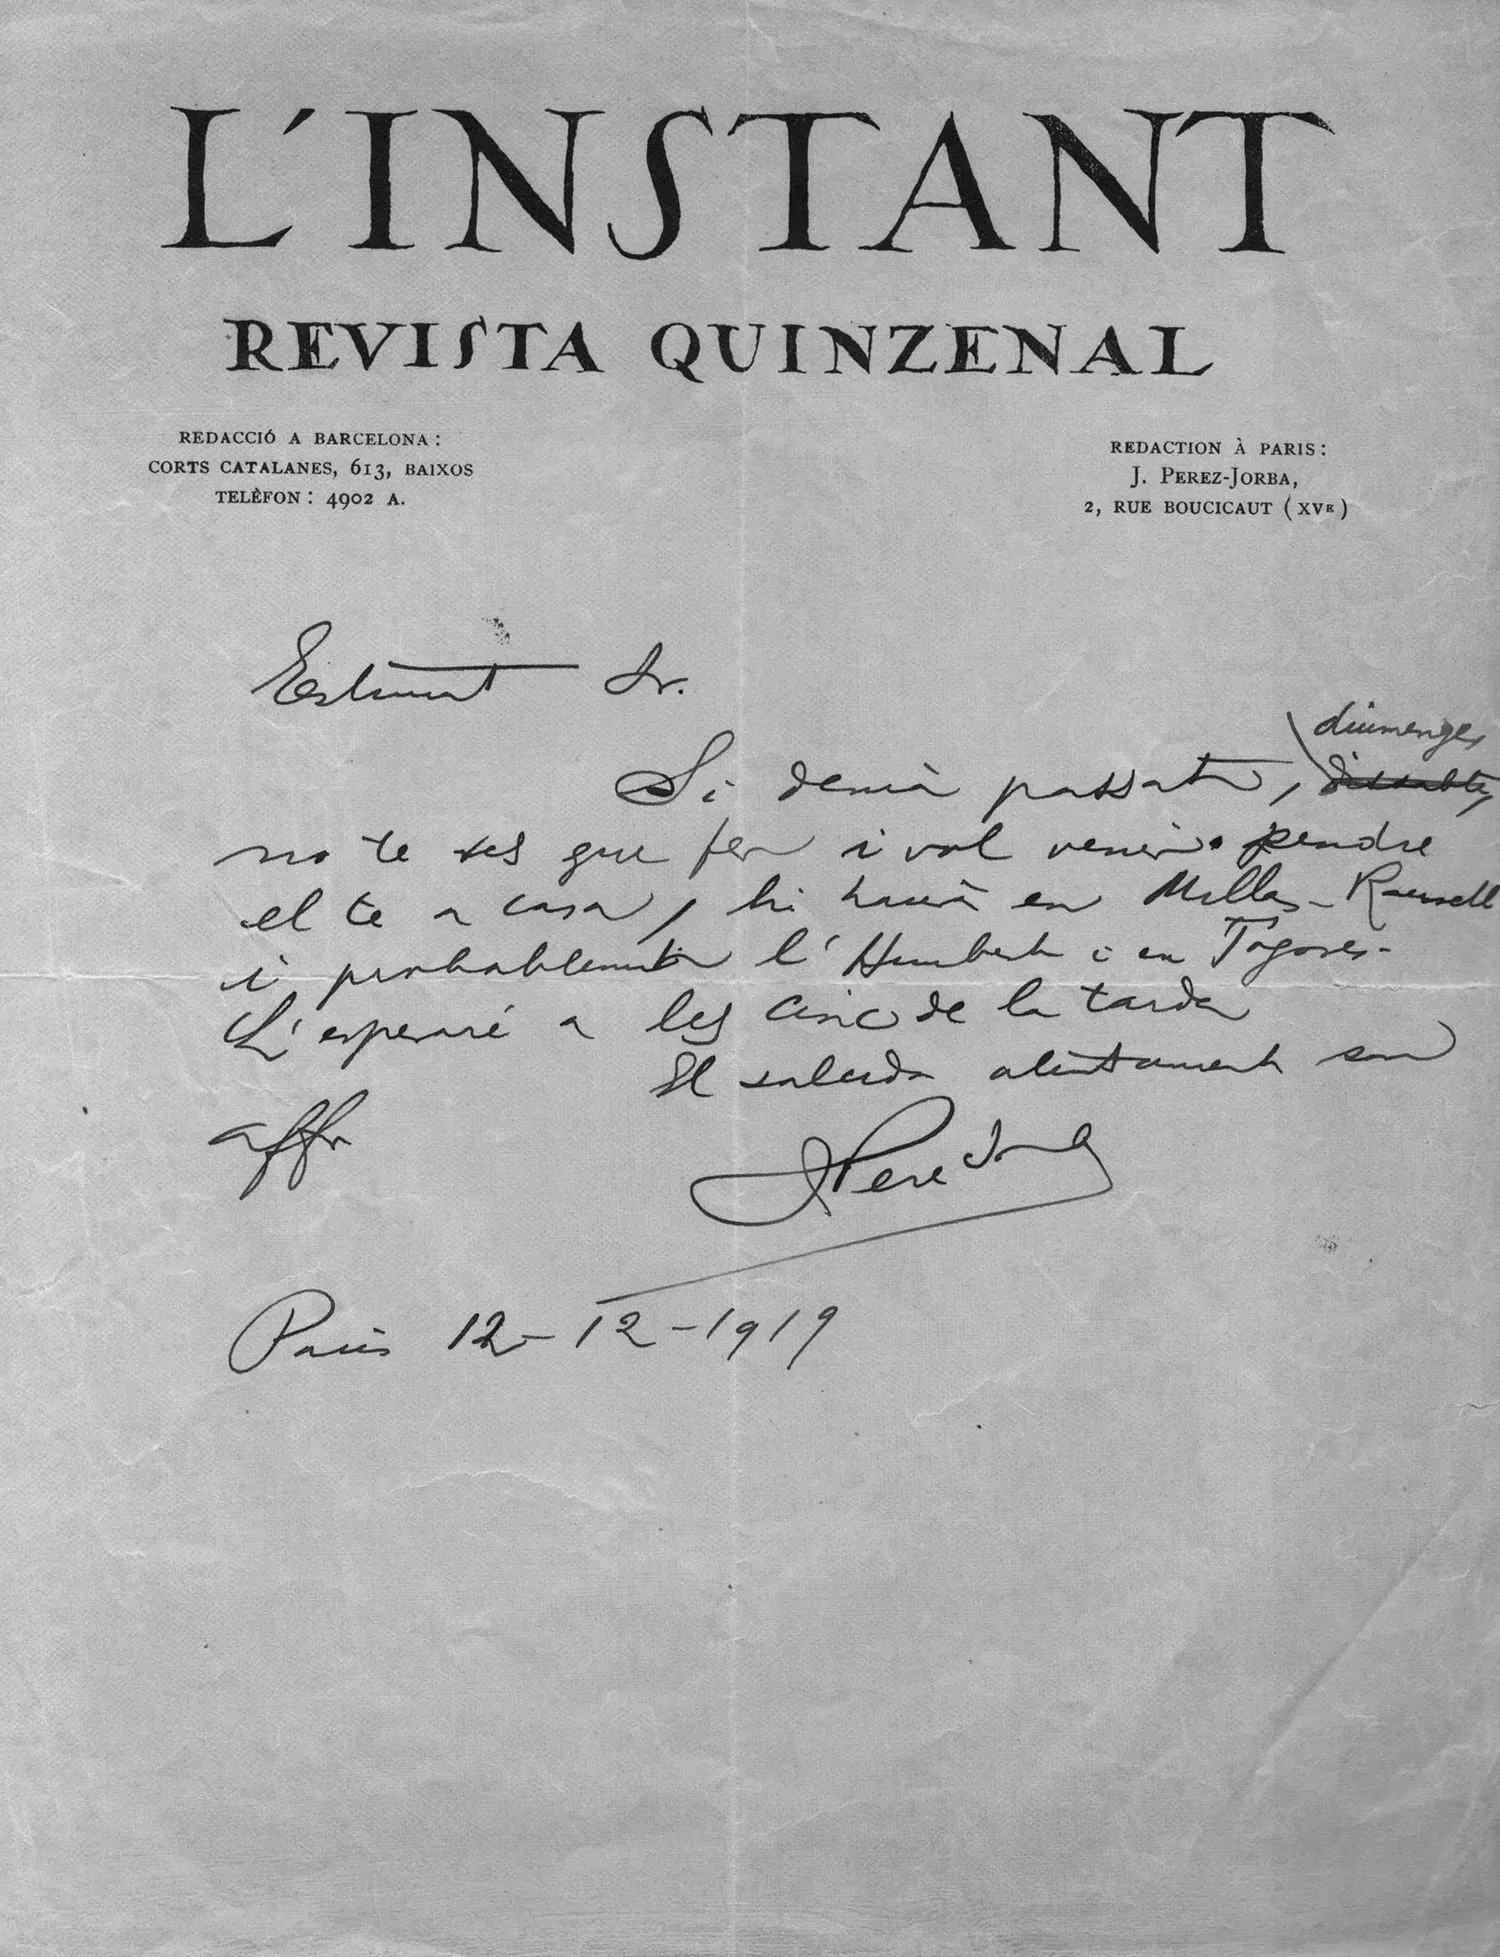 L'INSTANT
REVISTA QUINZENAL
REDACCIÓ A BARCELONA:
CORTS CATALANES, 613, BAIXOS
TELÈFON: 4902 A.
REDACTION À PARIS:
J. PEREZ-JORBA,
2, RUE BOUCICAUT (XVE)
Estimat Sr.
diumenge,
Si demà passat, dissabte,
no te res que fer i vol venir a pendre
el te a casa, hi haurà en Millas-Raurell
i probablement l'Humbert i en Togores.
L'esperaré a les cinc de la tarda
El saluda atentament son
affm
J Perez Jorba
Paris 12-12-1919